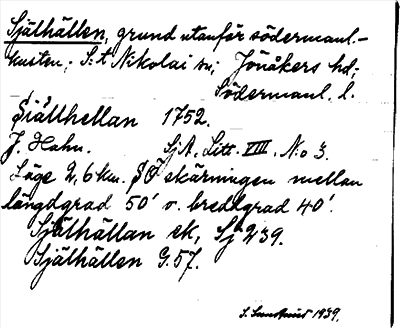 Själhällen, grund utanför södermanl.-
kusten; S:t Nikolai sn; Jönåkers hd;
Södermanl. l.
Siällhellan 1752.
J. Hahn. SjA, Litt. VIII, N:o 3.
Läge 2,6 km. SO skärningen mellan
längdgrad 50' o. breddgrad 40'.
Själhällan ek, Sj 239.
Själhällen G.57.
S. 1939.